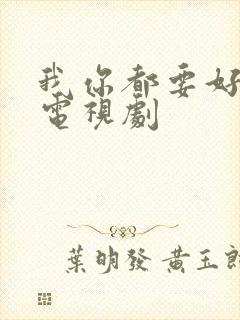 我你都要好
電視劇
葉明發 黃玉郎